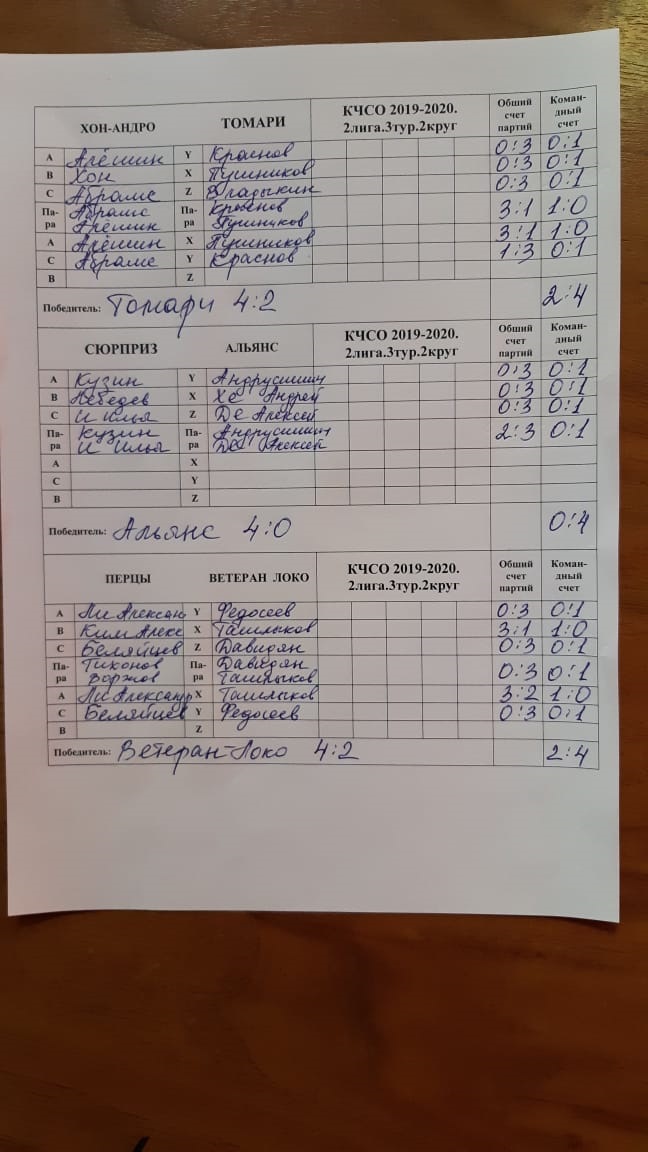 ХОН-АНДРО ТОМАРИ КЧСО 2019-2020. 2лига.3тур.2круг Общий счет партий Коман-дный счет
А Алёшин Y Краснов 0:3 0:1
В Хон X Пушников 0:3 0:1
С Абрамс Z Владыкин 0:3 0:1
Па-ра Абрамс Алёшин Па-ра Краснов Пушников 3:1 1:0
А Алёшин X Пушников 3:1 1:0
С Абрамс Y Краснов 1:3 0:1
В Z
Победитель: Томари 4:2 2:4
СЮРПРИЗ АЛЬЯНС КЧСО 2019-2020. 2лига.3тур.2круг Общий счет партий Коман-дный счет
А Кузин Y Андрусишин 0:3 0:1
В Лебедев X Хе Андрей 0:3 0:1
С И Илья Z Де Алексей 0:3 0:1
Па-ра Кузин И Илья Па-ра Андрусишин Де Алексей 2:3 0:1
А X
С Y
В Z
Победитель: Альянс 4:0 0:4
ПЕРЦЫ ВЕТЕРАН ЛОКО КЧСО 2019-2020. 2лига.3тур.2круг Общий счет партий Коман-дный счет
А Ли Алексан Y Федосеев 0:3 0:1
В Ким Алекс X Ташлыков 3:1 1:0
С Беляйцев Z Давидян 0:3 0:1
Па-ра Тихонов Воржов Па-ра Давидян Ташлыков 0:3 0:1
А Ли Александр X Ташлыков 3:2 1:0
С Беляйцев Y Федосеев 0:3 0:1
В Z
Победитель: Ветеран-Локо 4:2 2:4